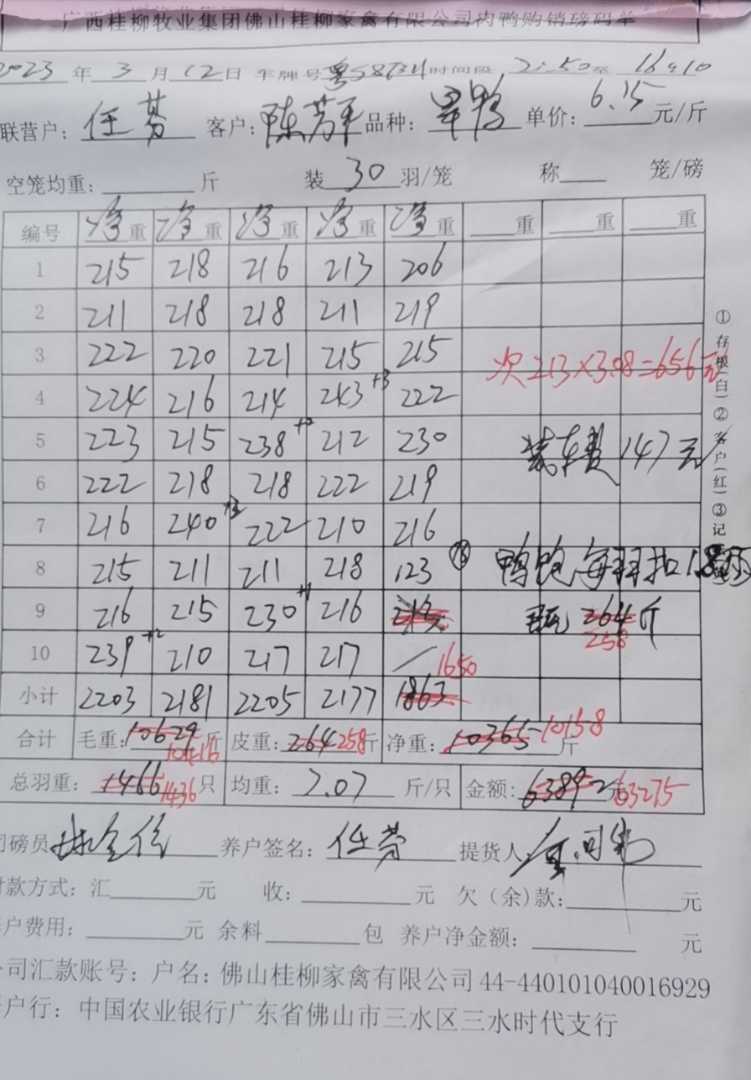 广西桂柳牧业集团佛山桂柳家禽有限公司肉鸭购销磅码单
2023 年 3 月 12 日 车牌号 时间段 2:50 至 16:10
联营户: 任芬 客户: 陈芳平 品种: 单价: 6.15 元/斤
空笼均重: 斤 装 30 羽/笼 称 笼/磅
编号 净重 净重 净重 净重 净重 重 重 重
1 215 218 216 213 206
2 211 218 218 211 219
3 222 220 221 215 215 次 213×3.08=656元
4 224 216 214 243 +3 222
5 223 215 238 212 230 装车费 147元
6 222 218 218 222 219
7 216 240 +3 222 210 216
8 215 211 211 218 123 鸭饱每羽扣1.8
9 216 215 230 +1 216 264斤
258
10 239 +2 210 217 217 / 1650
小计 2203 2181 2205 2177 1863
合计 毛重: 10629 斤 皮重: 264 258 斤 净重: 10365 10158 斤
10416
总羽重: 1466 1436 只 均重: 7.07 斤/只 金额: 63275
司磅员 养户签名: 任芬 提货人
付款方式: 汇 元 收: 元 欠(余)款: 元
养户费用: 元 余料 包 养户净金额: 元
公司汇款账号: 户名: 佛山桂柳家禽有限公司 44-440101040016929
开户行: 中国农业银行广东省佛山市三水区三水时代支行
①存根(白)②客户(红)③记